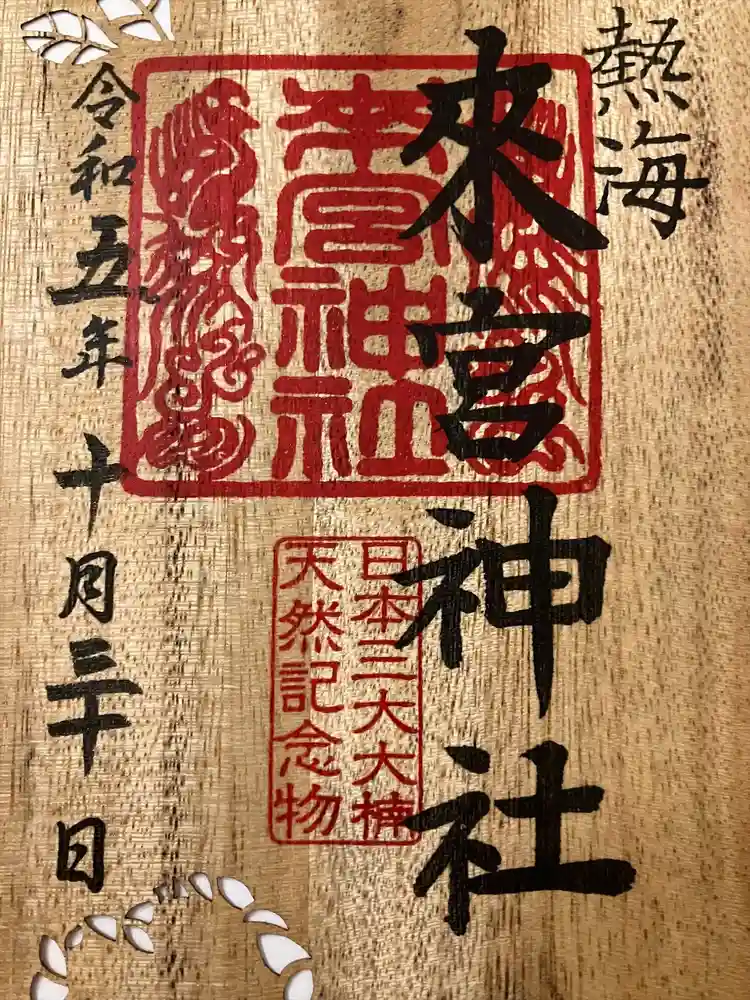 熱海
來宮神社
来宮神社
日本三大大楠
天然記念物
令和五年十月三十日